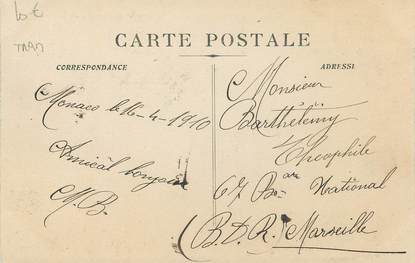 10€
TRAM
CARTE POSTALE
CORRESPONDANCE
ADRESSE
Monaco le 16-4-1910
Amical bonjour
M. B.
Monsieur
Barthélemy
Théophile
67 Bard National
(B.D.R.) Marseille